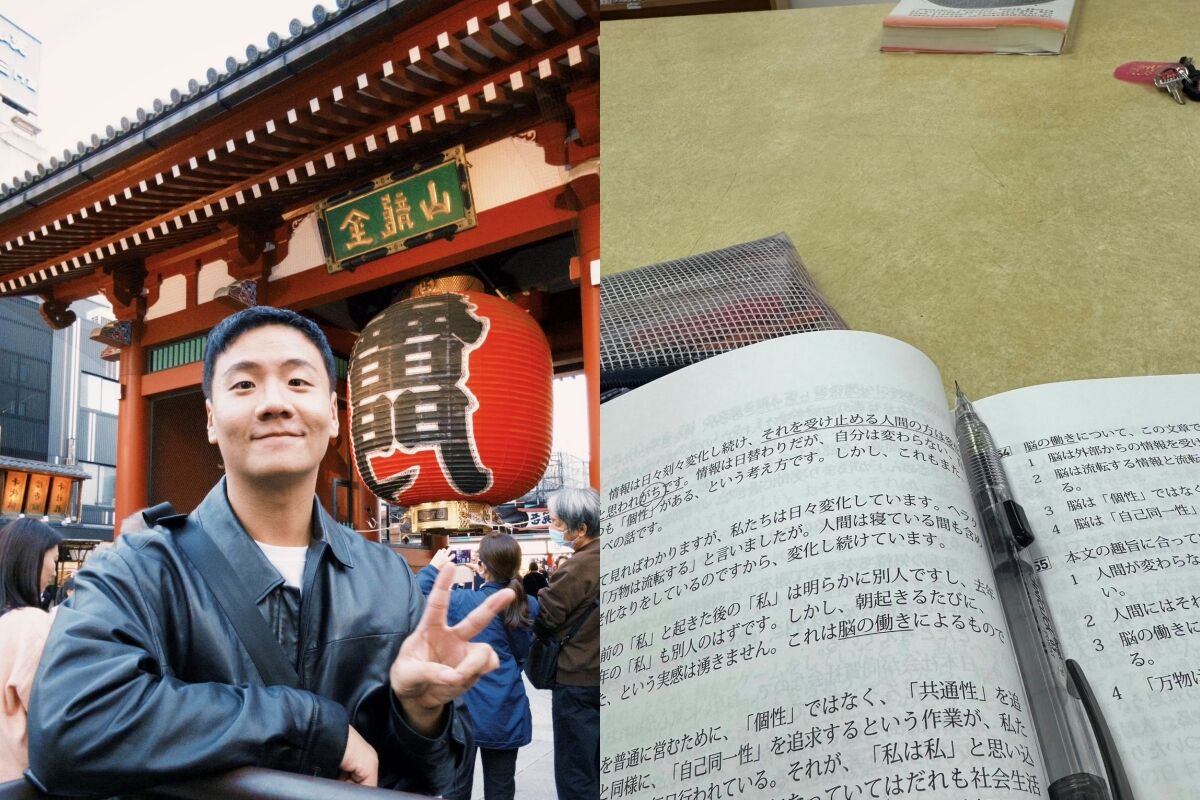 金龍山
情報は日々刻々変化し続け、それを受け止める人間の方は変
と思われがちです。情報は日替わりだが、自分は変わらない、
も「個性」がある、という考え方です。しかし、これもまた
べの話です。
て見ればわかりますが、私たちは日々変化しています。ヘラク
「万物は流転する」と言いましたが、人間は寝ている間も含め
老化なりをしているのですから、変化し続けています。
前の「私」と起きた後の「私」は明らかに別人ですし、去年
年の「私」も別人のはずです。しかし、朝起きるたびに、
た、という実感は湧きません。これは脳の働きによるもので
を普通に営むために、「個性」ではなく、「共通性」を追
と同様に、「自己同一性」を追求するという作業が、私た
毎日行われている。それが、「私は私」と思い込
なっていてはだれも社会生活
54 脳の働きについて、この文章で
1 脳は外部からの情報を受け
2 脳は流転する情報と流転
る。
3 脳は「個性」ではなく
4 脳は「自己同一性」
55 本文の趣旨に合って
1 人間が変わらな
い。
2 人間にはそ
3 脳の働きに
る。
4 「万物は